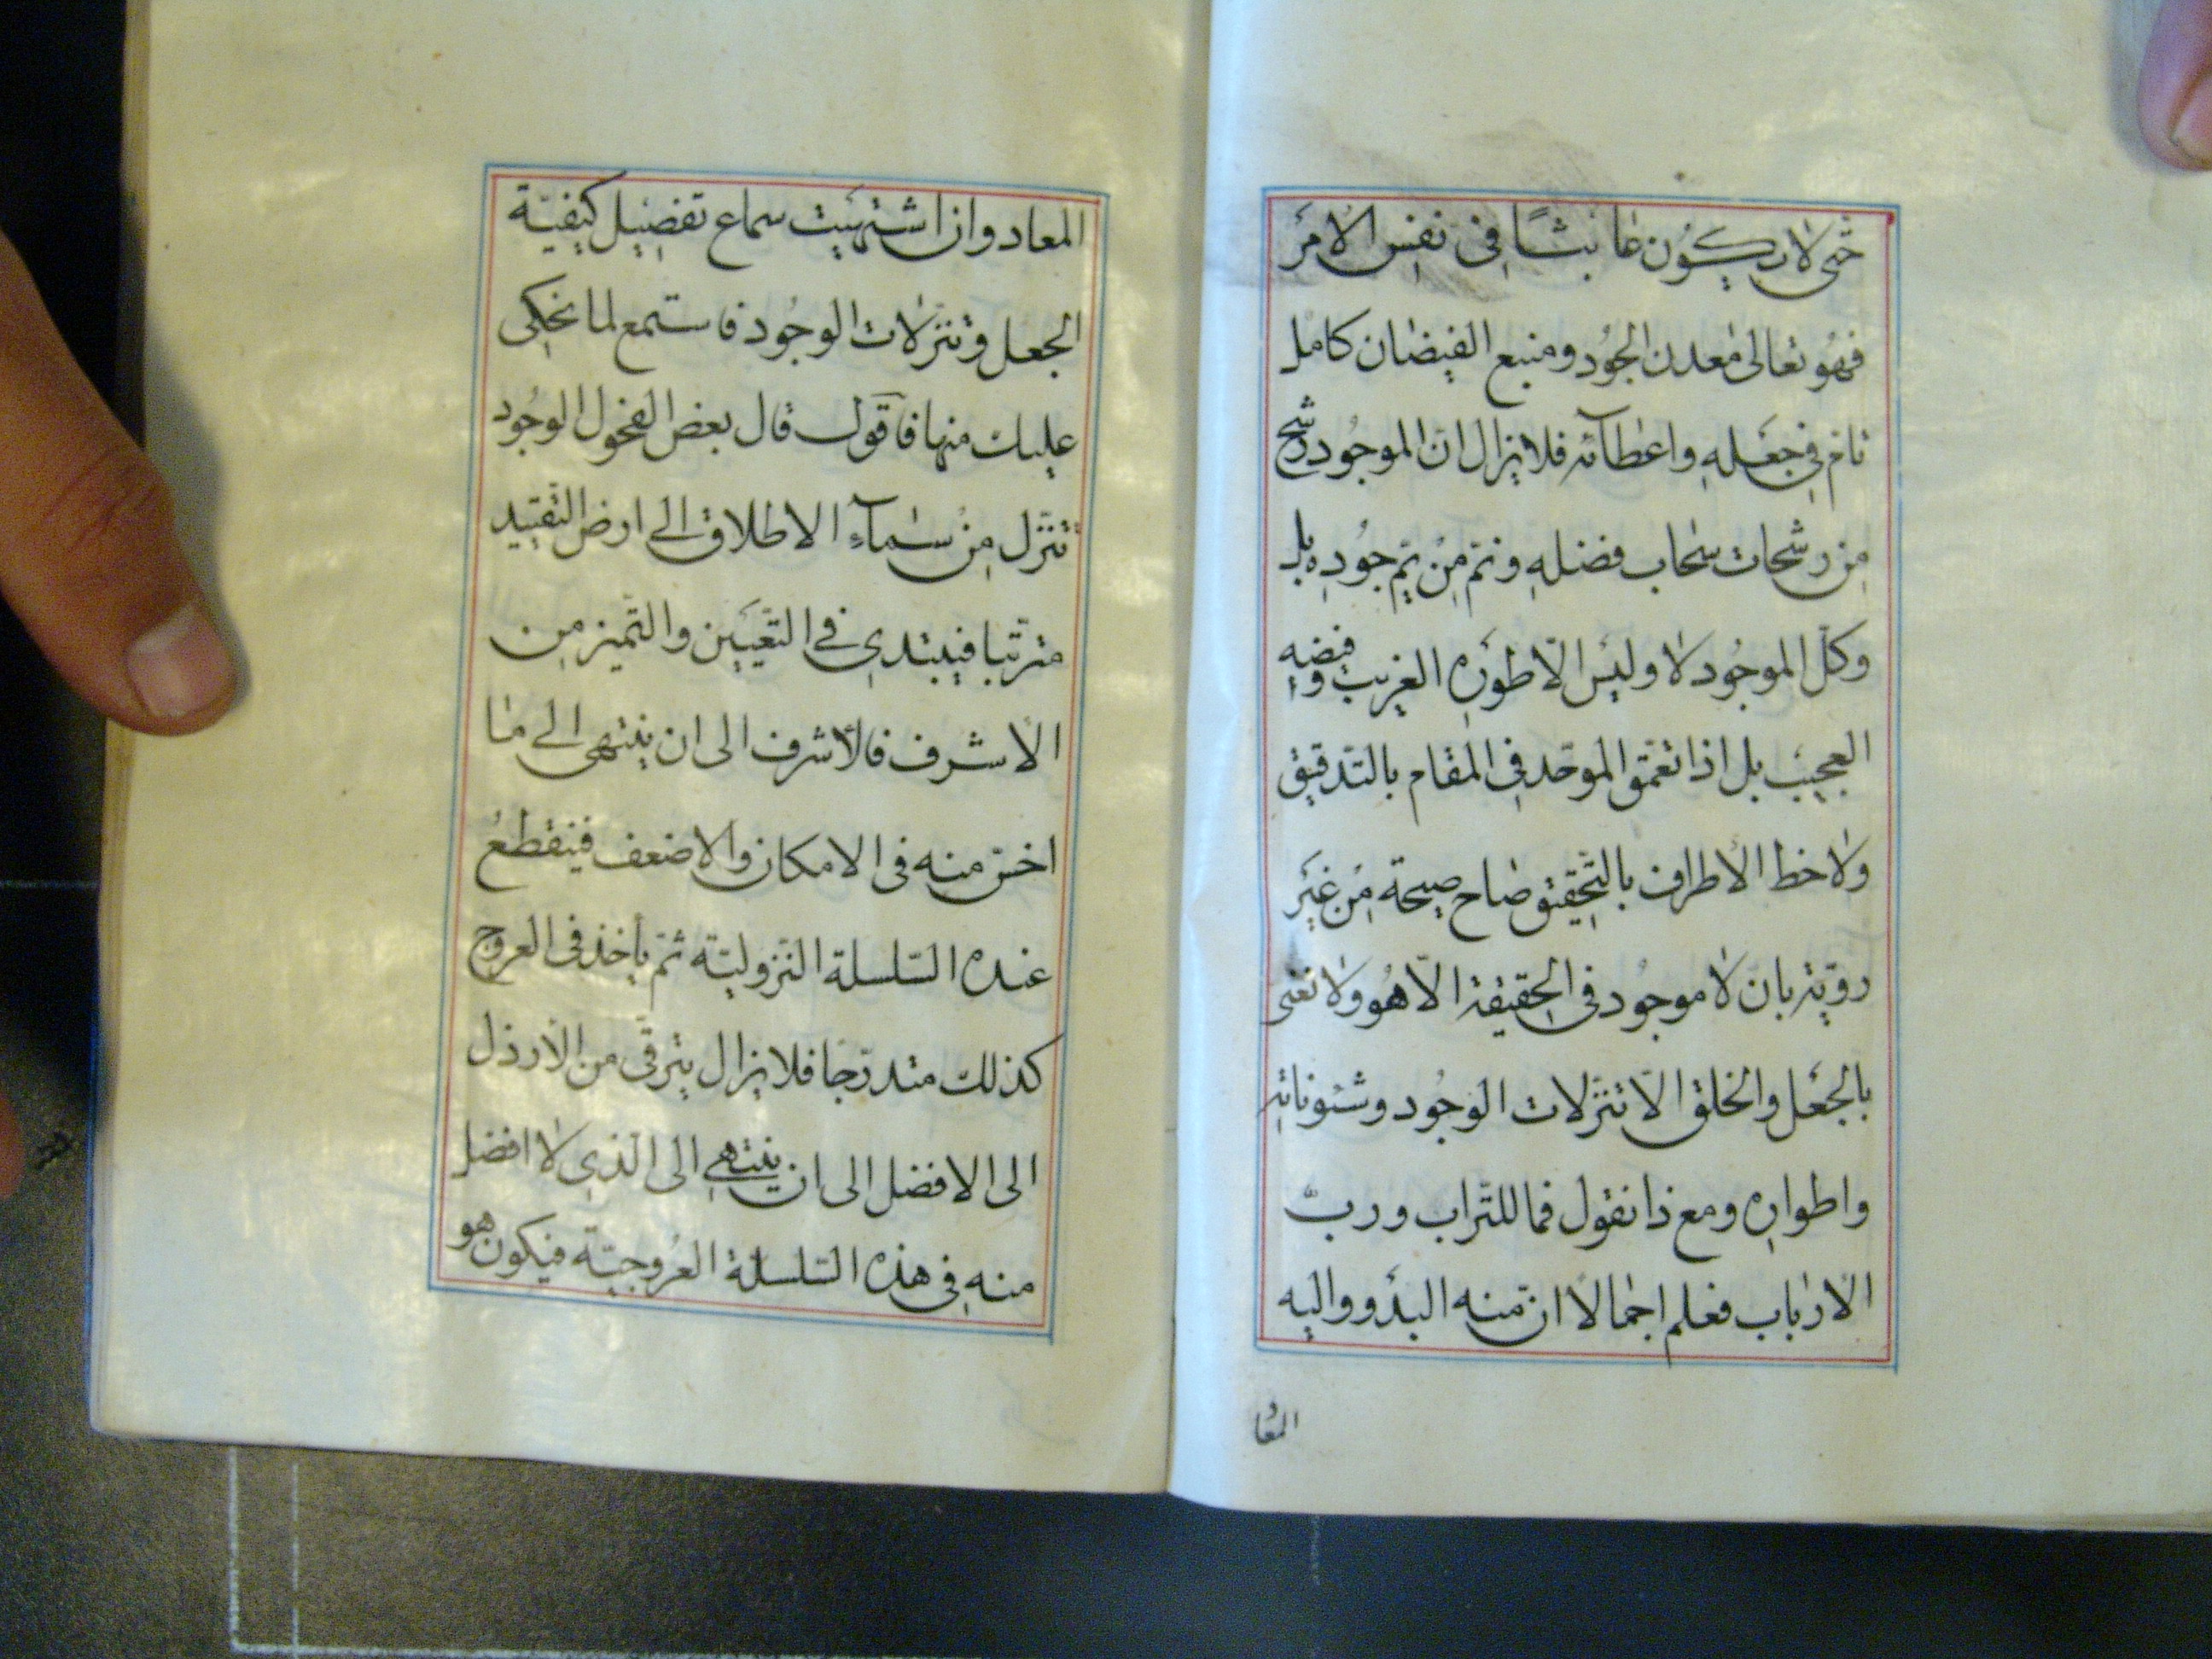 حتى لا يكون عابثا في نفس الامر
فهو تعالى معدن الجود ومنبع الفيضان كامل
تام في جعله واعطآئه فلا يزال ان الموجود رشح
من رشحات سحاب فضله ونم من يم جوده بل
وكل الموجود لا وليس الا طوره الغريب وفيضه
العجيب بل اذا تعمق الموحد في المقام بالتدقيق
ولاحظ الاطراف بالتحقيق صاح صيحة من غير
روية بان لا موجود في الحقيقة الا هو ولا نعنى
بالجعل والخلق الا تنزلات الوجود وشئوناته
واطواره ومع ذا نقول فما للتراب ورب
الارباب فعلم اجمالا ان منه البدؤ واليه
المعا
المعاد وان اشتهيت سماع تفصيل كيفية
الجعل وتنزلات الوجود فاستمع لما نحكى
عليك منها فآقول قال بعض الفحول الوجود
تنزل من سمآء الاطلاق الى ارض التقييد
مترتبا فيبتدى في التعين والتميز من
الاشرف فالاشرف الى ان ينتهى الى ما
اخس منه فى الامكان والاضعف فينقطع
عنده السلسلة النزولية ثم يأخذ فى العروج
كذلك متدرجا فلا يزال يترقى من الارذل
الى الافضل الى ان ينتهي الى الذى لا افضل
منه في هذه السلسلة العروجية فيكون هو